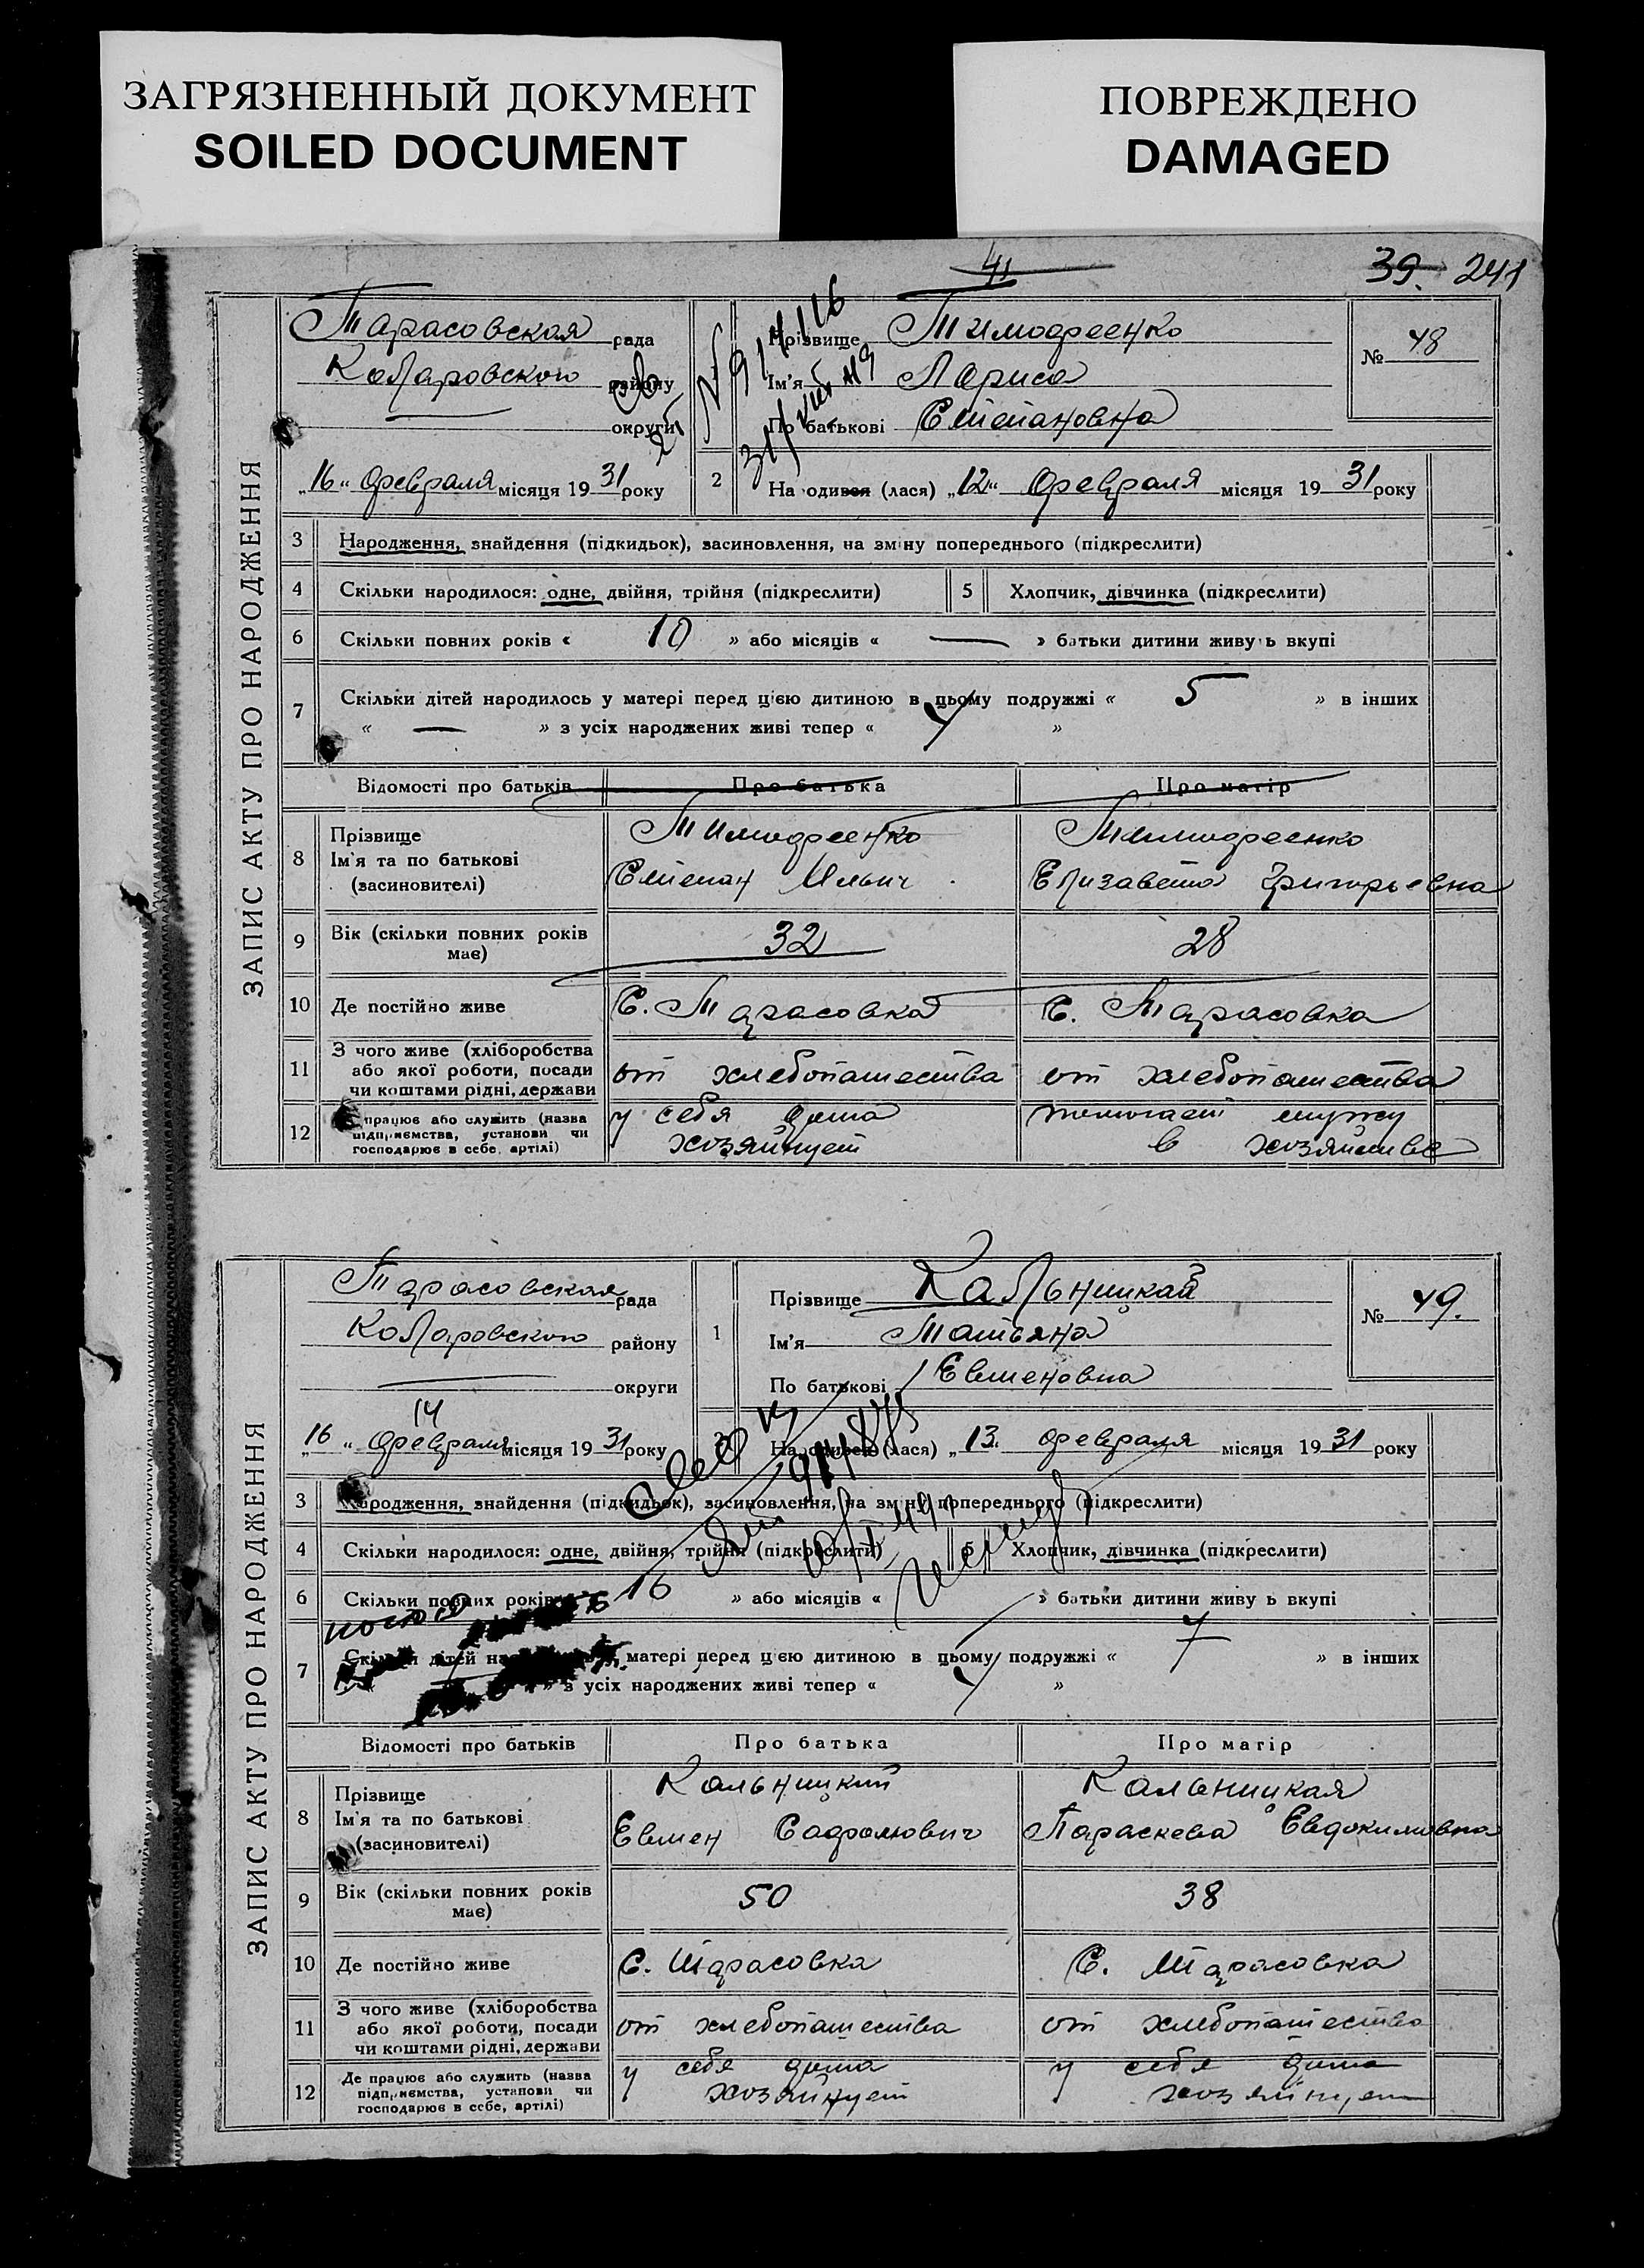 ЗАГРЯЗНЕННЫЙ ДОКУМЕНТ
SOILED DOCUMENT
ПОВРЕЖДЕНО
DAMAGED
41
39. 241
ЗАПИС АКТУ ПРО НАРОДЖЕННЯ
Тарасовская рада
Коларовского району
округи
„16“ февраля місяця 1931 року
Прізвище Тимофеенко
Ім'я Лариса
По батькові Степановна
№ 48
2 На одився (лася) „12“ февраля місяця 1931 року
3 Народження, знайдення (підкидьок), засиновлення, на зміну попереднього (підкреслити)
4 Скільки народилося: одне, двійня, трійня (підкреслити) 5 Хлопчик, дівчинка (підкреслити)
6 Скільки повних років « 10 » або місяців « — » батьки дитини живуь вкупі
7 Скільки дітей народилось у матері перед цією дитиною в цьому подружжі « 5 » в інших
« — » з усіх народжених живі тепер « »
Відомості про батьків Про батька Про матір
8 Прізвище Тимофеенко Тимофеенко
Ім'я та по батькові
(засиновителі) Степан Ильич Елизавета Григорьевна
9 Вік (скільки повних років має) 32 28
10 Де постійно живе С. Тарасовка С. Тарасовка
11 З чого живе (хліборобства
або якої роботи, посади от хлебопашества от хлебопашества
чи коштами рідні, держави
12 працює або служить (назва у себя дома помогает мужу
підприємства, установи чи хозяйнует в хозяйстве
господарює в себе, артілі)
ЗАПИС АКТУ ПРО НАРОДЖЕННЯ
Тарасовская рада
Коларовского району
округи
14
„16“ февраля місяця 1931 року
1 Прізвище Кальницкая
Ім'я Татьяна
По батькові Евменовна
№ 49.
На одився (лася) „13“ февраля місяця 1931 року
3 Народження, знайдення (підкидьок), засиновлення, на зміну попереднього (підкреслити)
4 Скільки народилося: одне, двійня, трійня (підкреслити) 5 Хлопчик, дівчинка (підкреслити)
6 Скільки повних років 16 » або місяців « » батьки дитини живу ь вкупі
7 Скільки дітей матері перед цією дитиною в цьому подружжі « 7 » в інших
» з усіх народжених живі тепер « »
Відомості про батьків Про батька Про матір
8 Прізвище Кальницкий Кальницкая
Ім'я та по батькові Евмен Параскева Евдокимовна
(засиновителі)
9 Вік (скільки повних років має) 50 38
10 Де постійно живе С. Тарасовка С. Тарасовка
11 З чого живе (хліборобства
або якої роботи, посади от хлебопашества от хлебопашества
чи коштами рідні, держави
12 Де працює або служить (назва у себя дома у себя дома
підприємства, установи чи хозяйнует хозяйнует
господарює в себе, артілі)